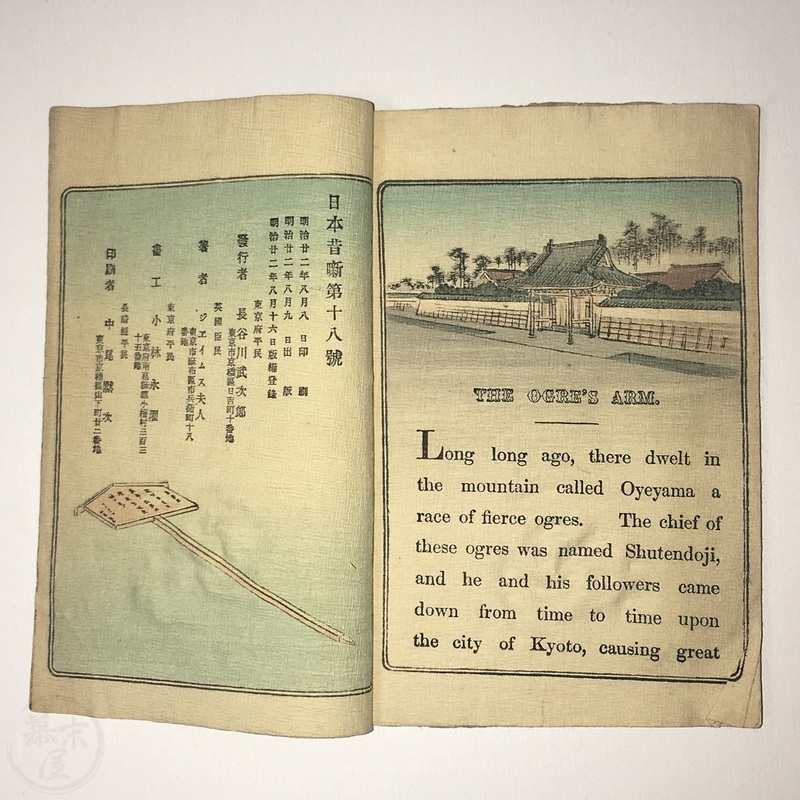 日本昔噺第十八號
明治廿二年八月八日印刷
明治廿二年八月九日出版
明治廿二年八月十六日版權登錄
東京府平民
發行者 長谷川武次郎
東京市京橋區日吉町十番地
英國臣民
著者 ジエイムス夫人
東京市麻布區市兵衛町十八
番地
東京府平民
畫工 小林永濯
東京府南葛飾郡小梅村三百三
十五番地
長崎縣平民
印刷者 中尾黙次
東京市京橋區山下町廿二番地
THE OGRE'S ARM.
Long long ago, there dwelt in
the mountain called Oyeyama a
race of fierce ogres. The chief of
these ogres was named Shutendoji,
and he and his followers came
down from time to time upon
the city of Kyoto, causing great
幕末屋